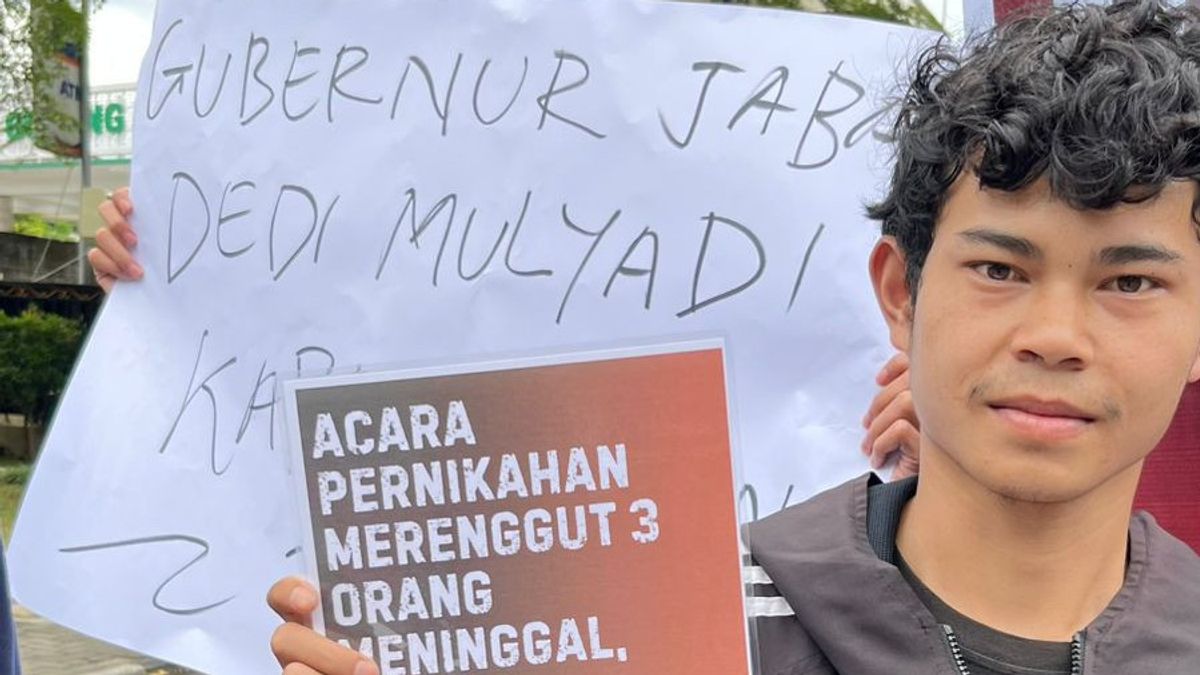 GUBERNUR JABA
DEDI MULYADI
KAB
ACARA
PERNIKAHAN
MERENGGUT 3
ORANG
MENINGGAL,